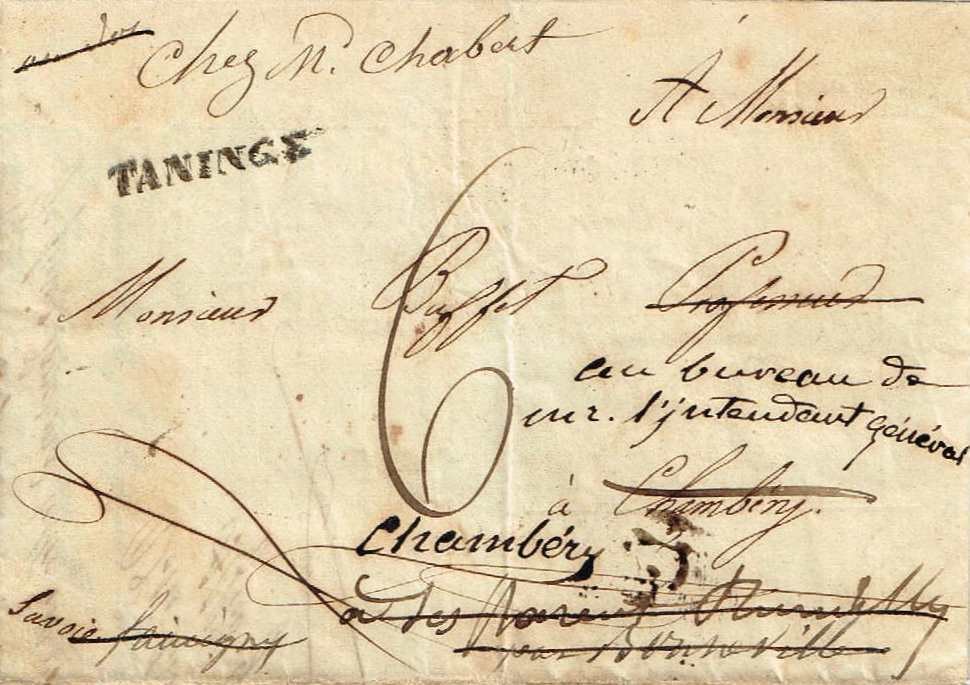 au dos
Chez M. Chabert
A Monsieur
TANINGE
6
Monsieur Buffet Professeur
au bureau de
mr. l'jntendant général
à Chambéry.
Chambéry
Savoie faucigny
par Bonneville